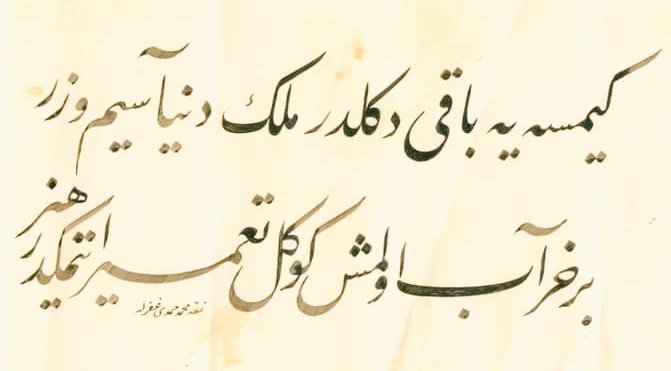 كیمسه یه باقی دكلدر ملك دنیا سیم و زر
بر خرآب اولمش كوكل تعمیر ایتمكدر هنر
نمقه محمد حمدی غفرله